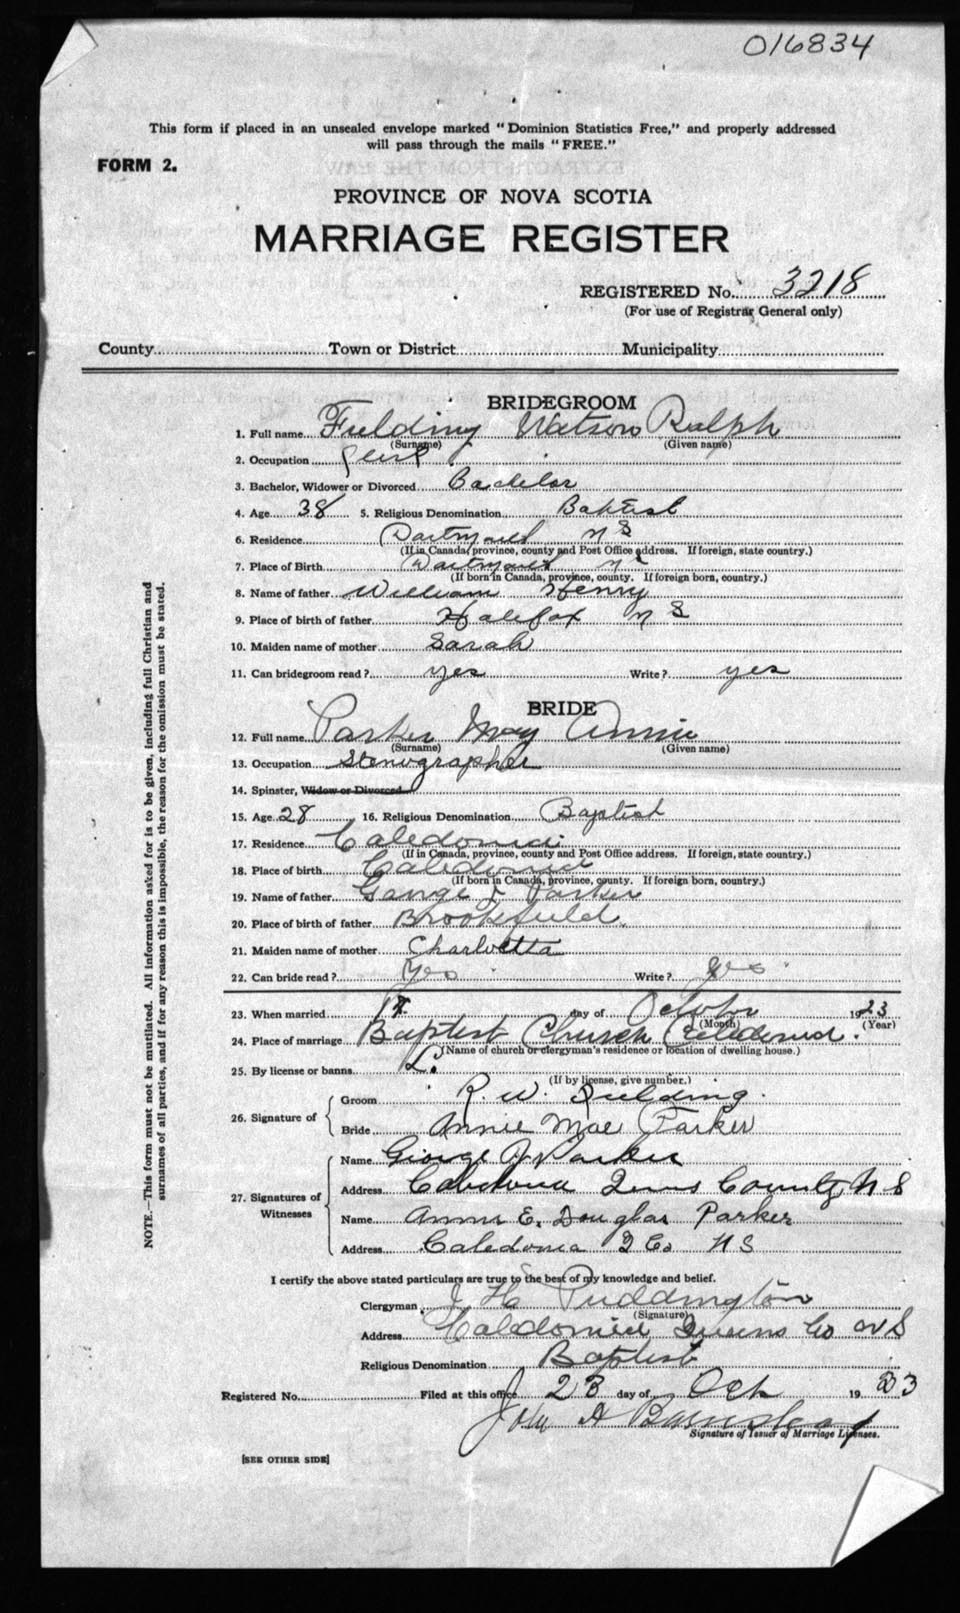 016834
This form if placed in an unsealed envelope marked "Dominion Statistics Free," and properly addressed
will pass through the mails "FREE."
FORM 2.
PROVINCE OF NOVA SCOTIA
MARRIAGE REGISTER
REGISTERED No. 3218
(For use of Registrar General only)
County Town or District Municipality
BRIDEGROOM
1. Full name Fielding Watson Ralph
(Surname) (Given name)
2. Occupation
3. Bachelor, Widower or Divorced Bachelor
4. Age 38 5. Religious Denomination Baptist
6. Residence Dartmouth N S
(If in Canada, province, county and Post Office address. If foreign, state country.)
7. Place of Birth Dartmouth NS
(If born in Canada, province, county. If foreign born, country.)
8. Name of father William Henry
9. Place of birth of father Halifax N S
10. Maiden name of mother Sarah
11. Can bridegroom read? yes Write? yes
BRIDE
12. Full name Parker May Annie
(Surname) (Given name)
13. Occupation Stenographer
14. Spinster, Widow or Divorced
15. Age 28 16. Religious Denomination Baptist
17. Residence Caledonia
(If in Canada, province, county and Post Office address. If foreign, state country.)
18. Place of birth Caledonia
(If born in Canada, province, county. If foreign born, country.)
19. Name of father George Parker
20. Place of birth of father Brookfield
21. Maiden name of mother Charlotta
22. Can bride read? Yes Write? yes
23. When married day of October 1923
(Month) (Year)
24. Place of marriage Baptist Church Caledonia.
(Name of church or clergyman's residence or location of dwelling house.)
25. By license or banns L.
(If by license, give number.)
26. Signature of
Groom R. W. Fielding.
Bride Annie Mae Parker
27. Signatures of Witnesses
Name George Parker
Address Caledonia Queens County N S
Name Annie E. Douglas Parker
Address Caledonia Q Co N S
I certify the above stated particulars are true to the best of my knowledge and belief.
Clergyman J H Puddington
(Signature)
Address Caledonia Queens Co N S
Religious Denomination Baptist
Registered No. Filed at this office 23 day of Oct 19 23
John A
Signature of Issuer of Marriage Licenses.
[SEE OTHER SIDE]
NOTE.—This form must not be mutilated. All information asked for is to be given, including full Christian and
surnames of all parties, and if for any reason this is impossible, the reason for the omission must be stated.